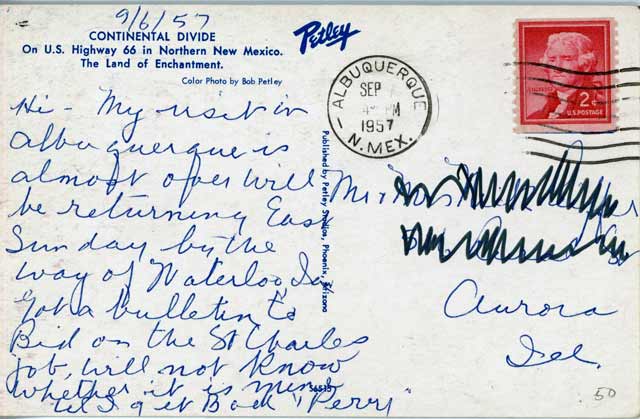 9/6/57
CONTINENTAL DIVIDE
On U.S. Highway 66 in Northern New Mexico.
The Land of Enchantment.
Color Photo by Bob Petley
Petley
ALBUQUERQUE
SEP
PM
1957
N. MEX.
2¢
U.S. POSTAGE
Hi - My visit in
Albuquerque is
almost over will
be returning East
Sunday by the
way of Waterloo, Ia
Got a bulletin to
Bid on the St Charles
job, will not know
whether it is mine
til I git Back "Perry"
Published by Petley Studios, Phoenix, Arizona
Aurora
Ill.
50